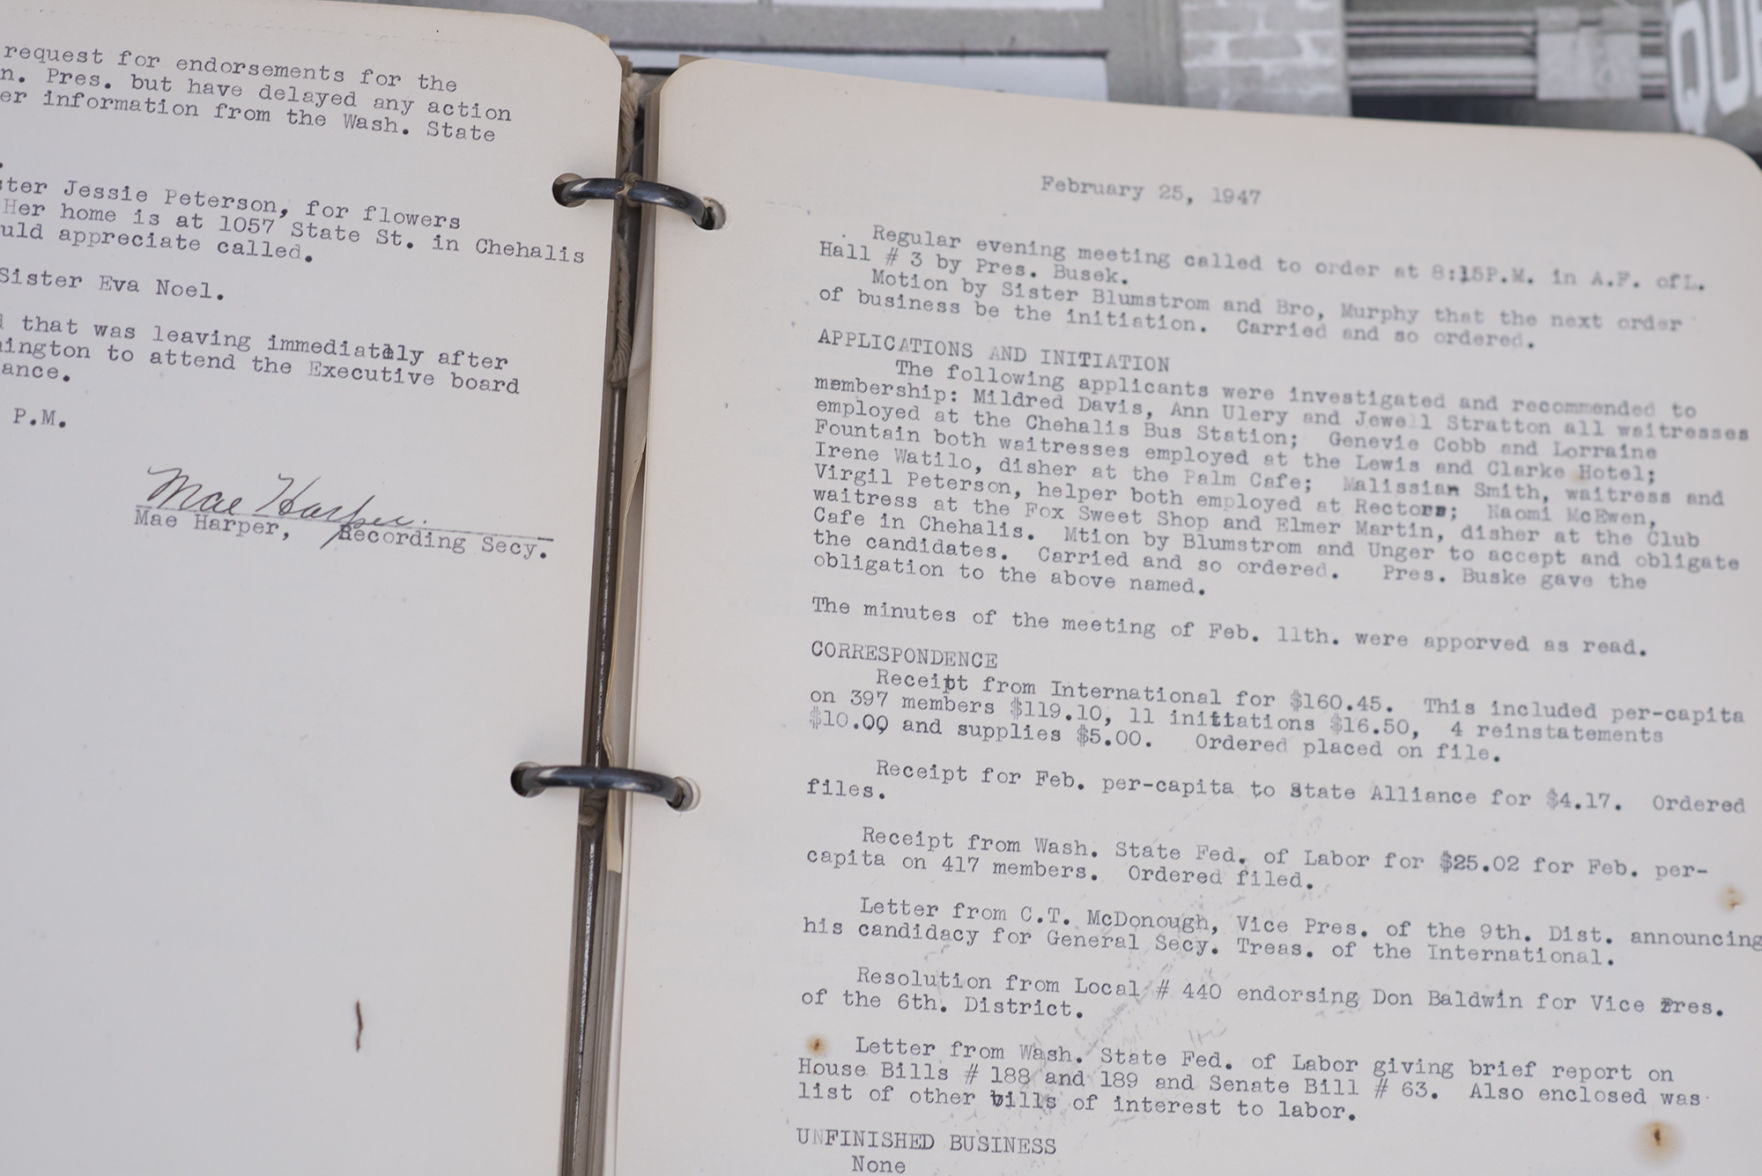 request for endorsements for the
n. Pres. but have delayed any action
er information from the Wash. State
ter Jessie Peterson, for flowers
Her home is at 1057 State St. in Chehalis
uld appreciate called.
Sister Eva Noel.
d that was leaving immediatàly after
ington to attend the Executive board
ance.
P.M.
Mae Harper.
Mae Harper, Recording Secy.
February 25, 1947
Regular evening meeting called to order at 8:15P.M. in A.F. ofL.
Hall # 3 by Pres. Busek.
Motion by Sister Blumstrom and Bro, Murphy that the next order
of business be the initiation. Carried and so ordered.
APPLICATIONS AND INITIATION
The following applicants were investigated and recommended to
membership: Mildred Davis, Ann Ulery and Jewell Stratton all waitresses
employed at the Chehalis Bus Station; Genevie Cobb and Lorraine
Fountain both waitresses employed at the Lewis and Clarke Hotel;
Irene Watilo, disher at the Palm Cafe; Malissian Smith, waitress and
Virgil Peterson, helper both employed at Rectors; Naomi McEwen,
waitress at the Fox Sweet Shop and Elmer Martin, disher at the Club
Cafe in Chehalis. Mtion by Blumstrom and Unger to accept and obligate
the candidates. Carried and so ordered. Pres. Buske gave the
obligation to the above named.
The minutes of the meeting of Feb. 11th. were apporved as read.
CORRESPONDENCE
Receipt from International for $160.45. This included per-capita
on 397 members $119.10, 11 initiations $16.50, 4 reinstatements
$10.00 and supplies $5.00. Ordered placed on file.
Receipt for Feb. per-capita to State Alliance for $4.17. Ordered
files.
Receipt from Wash. State Fed. of Labor for $25.02 for Feb. per-
capita on 417 members. Ordered filed.
Letter from C.T. McDonough, Vice Pres. of the 9th. Dist. announcing
his candidacy for General Secy. Treas. of the International.
Resolution from Local # 440 endorsing Don Baldwin for Vice Pres.
of the 6th. District.
Letter from Wash. State Fed. of Labor giving brief report on
House Bills # 188 and 189 and Senate Bill # 63. Also enclosed was
list of other bills of interest to labor.
UNFINISHED BUSINESS
None